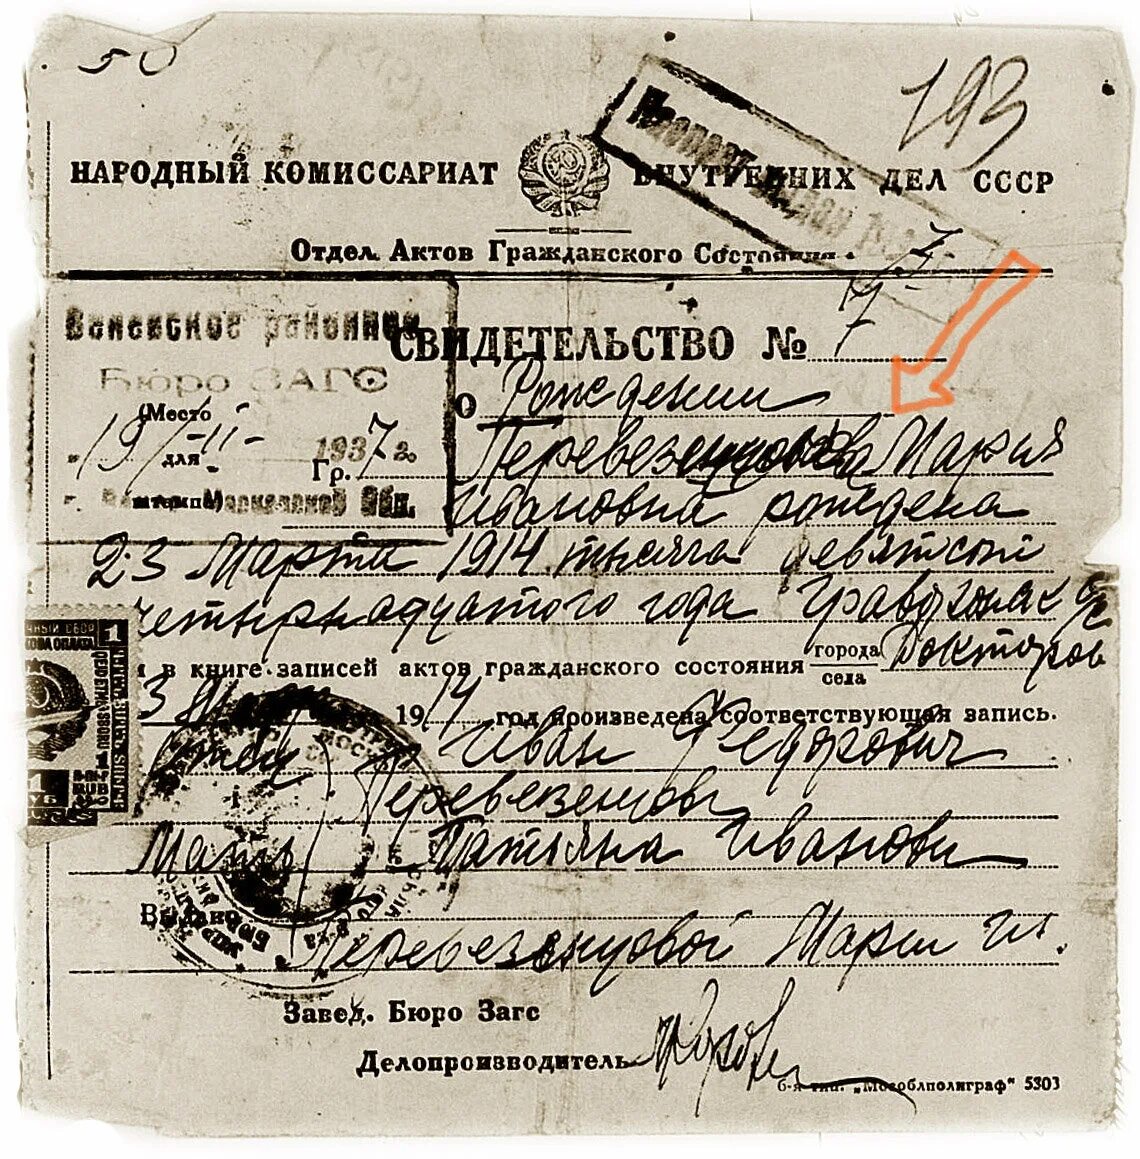 50
193
НАРОДНЫЙ КОМИССАРИАТ ВНУТРЕННИХ ДЕЛ СССР
Отдел Актов Гражданского Состояния
Веневское районное
Бюро ЗАГС
(Место
для
штемпеля)
19/-II- 1937 г.
Гр.
Московской Обл.
СВИДЕТЕЛЬСТВО №
о Рождении
Перевезенцова Мария
Ивановна рождена
23 Марта 1914 тысяча девятсот
четырнадцатого года
и в книге записей актов гражданского состояния города
села
Докторов
1914 год произведена соответствующая запись.
Отец Иван Федорович
Перевезенцовы
Мать Татьяна Иванови
Выдано
Перевезенцовой Марии И.
Завед. Бюро Загс
Делопроизводитель
б-я тип. „Мособлполиграф" 5303